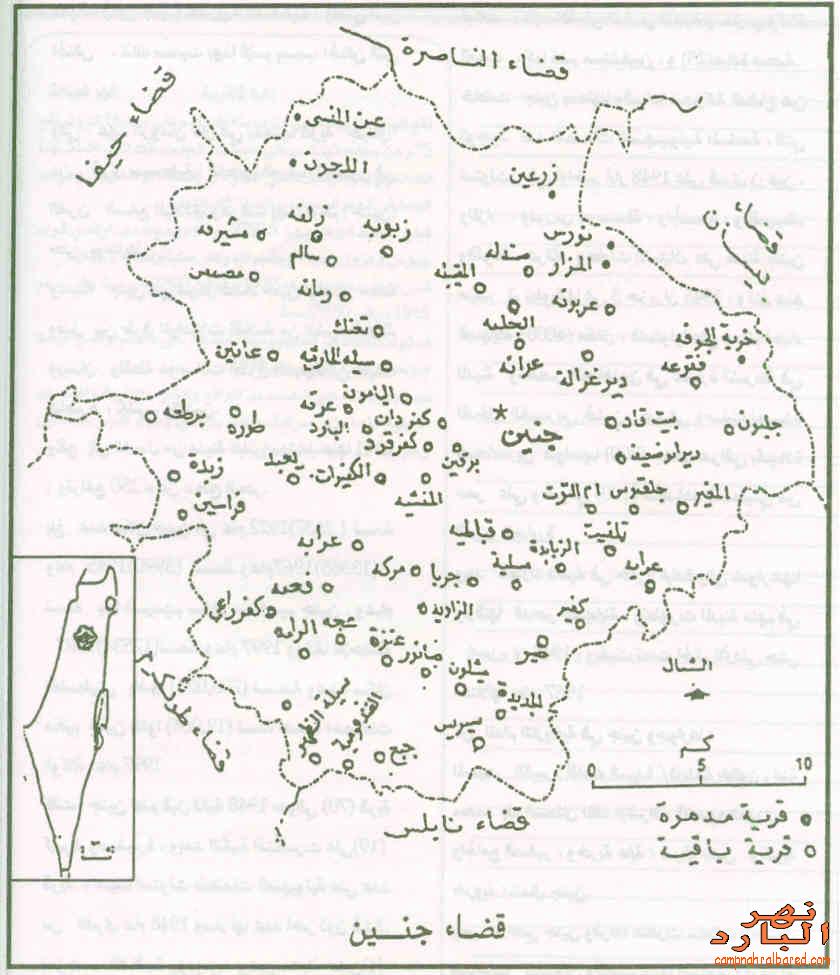 قضاء الناصرة
قضاء حيفا
عين المنسي
اللجون
زرعين
بيسان
زلفه
زبوبه
نورس
مشيرفه
سالم
صندله
المزار
المقيبله
مصمص
رمانه
عربونه
خربة الجوفه
تعنك
الجلمه
فقوعه
عرانين
سيله الحارثيه
عرانه
دير غزاله
اليامون
عرقه
كفردان
جلبون
برطعه
طوره
الهاشميه
كفرقود
جنين
بيت قاد
دير ابو ضعيف
زبدة
يعبد
برقين
الكفيرات
المغير
جلقموس
ام التوت
الشهيد
فراسين
عرابه
قباطيه
تلفيت
الزبابدة
مسلية
جربا
مركه
فحمه
كفرراعي
الزاويه
كفير
عجه
الرامه
عنزه
صانور
صير
الشمال
ميثلون
سيلة الظهر
الجديده
الفندقوميه
سيريس
جبع
قضاء طولكرم
كم
0 5 10
قرية مدمرة
قرية باقية
قضاء نابلس
قضاء جنين
نهر البارد
campnahralbared.com